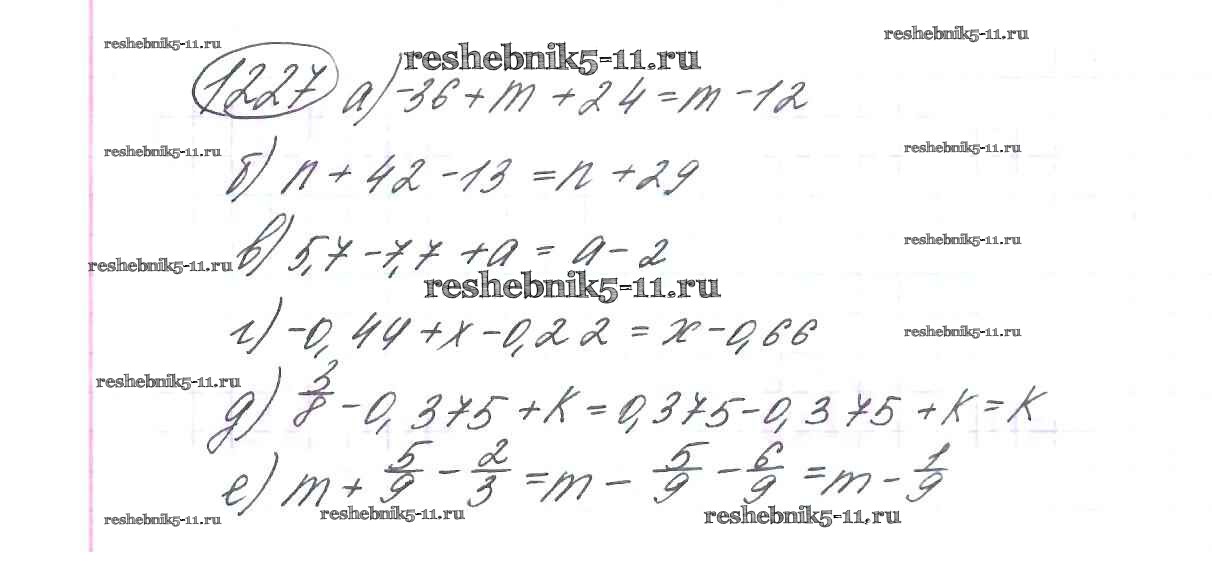 reshebnik5-11.ru
reshebnik5-11.ru
reshebnik5-11.ru
1227 а) -36 + m + 24 = m - 12
reshebnik5-11.ru
reshebnik5-11.ru
б) n + 42 - 13 = n + 29
reshebnik5-11.ru
в) 5,7 - 7,7 + a = a - 2
reshebnik5-11.ru
reshebnik5-11.ru
г) -0,44 + x - 0,22 = x - 0,66
reshebnik5-11.ru
reshebnik5-11.ru
д) 3/8 - 0,375 + K = 0,375 - 0,375 + K = K
е) m + 5/9 - 2/3 = m - 5/9 - 6/9 = m - 1/9
reshebnik5-11.ru
reshebnik5-11.ru
reshebnik5-11.ru